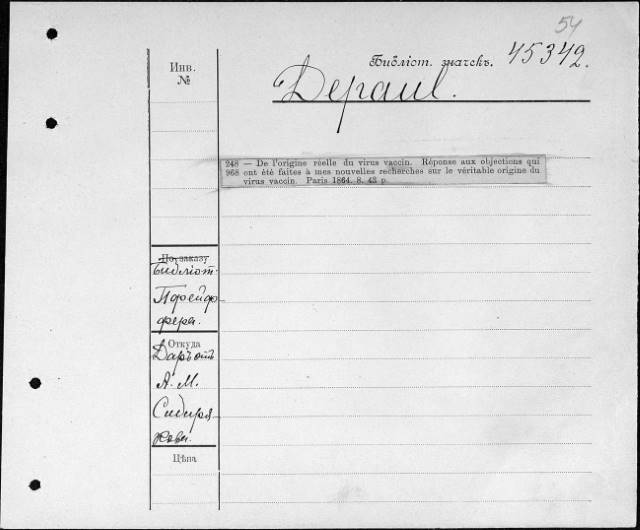 54
Инв.
№
Библіот. значекъ.
45342.
Depaul.
248 — De l'origine réelle du virus vaccin. Réponse aux objections qui
968 ont été faites à mes nouvelles recherches sur le véritable origine du
virus vaccin. Paris 1864. 8. 43 p.
По заказу
Библіот.
Пфейф-
фера.
Откуда
Даръ отъ
А. М.
Сибиря-
кова.
Цѣна